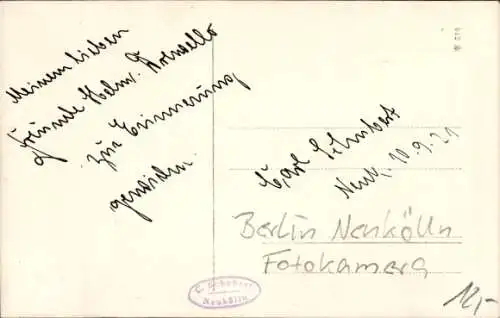 Meinem lieben
Freunde Helm.
zur Erinnerung
gewidm.
Carl Schubert
Neuk. 10.9.21
Berlin Neukölln
Fotokamera
12,-
C. Schubert
Neukölln